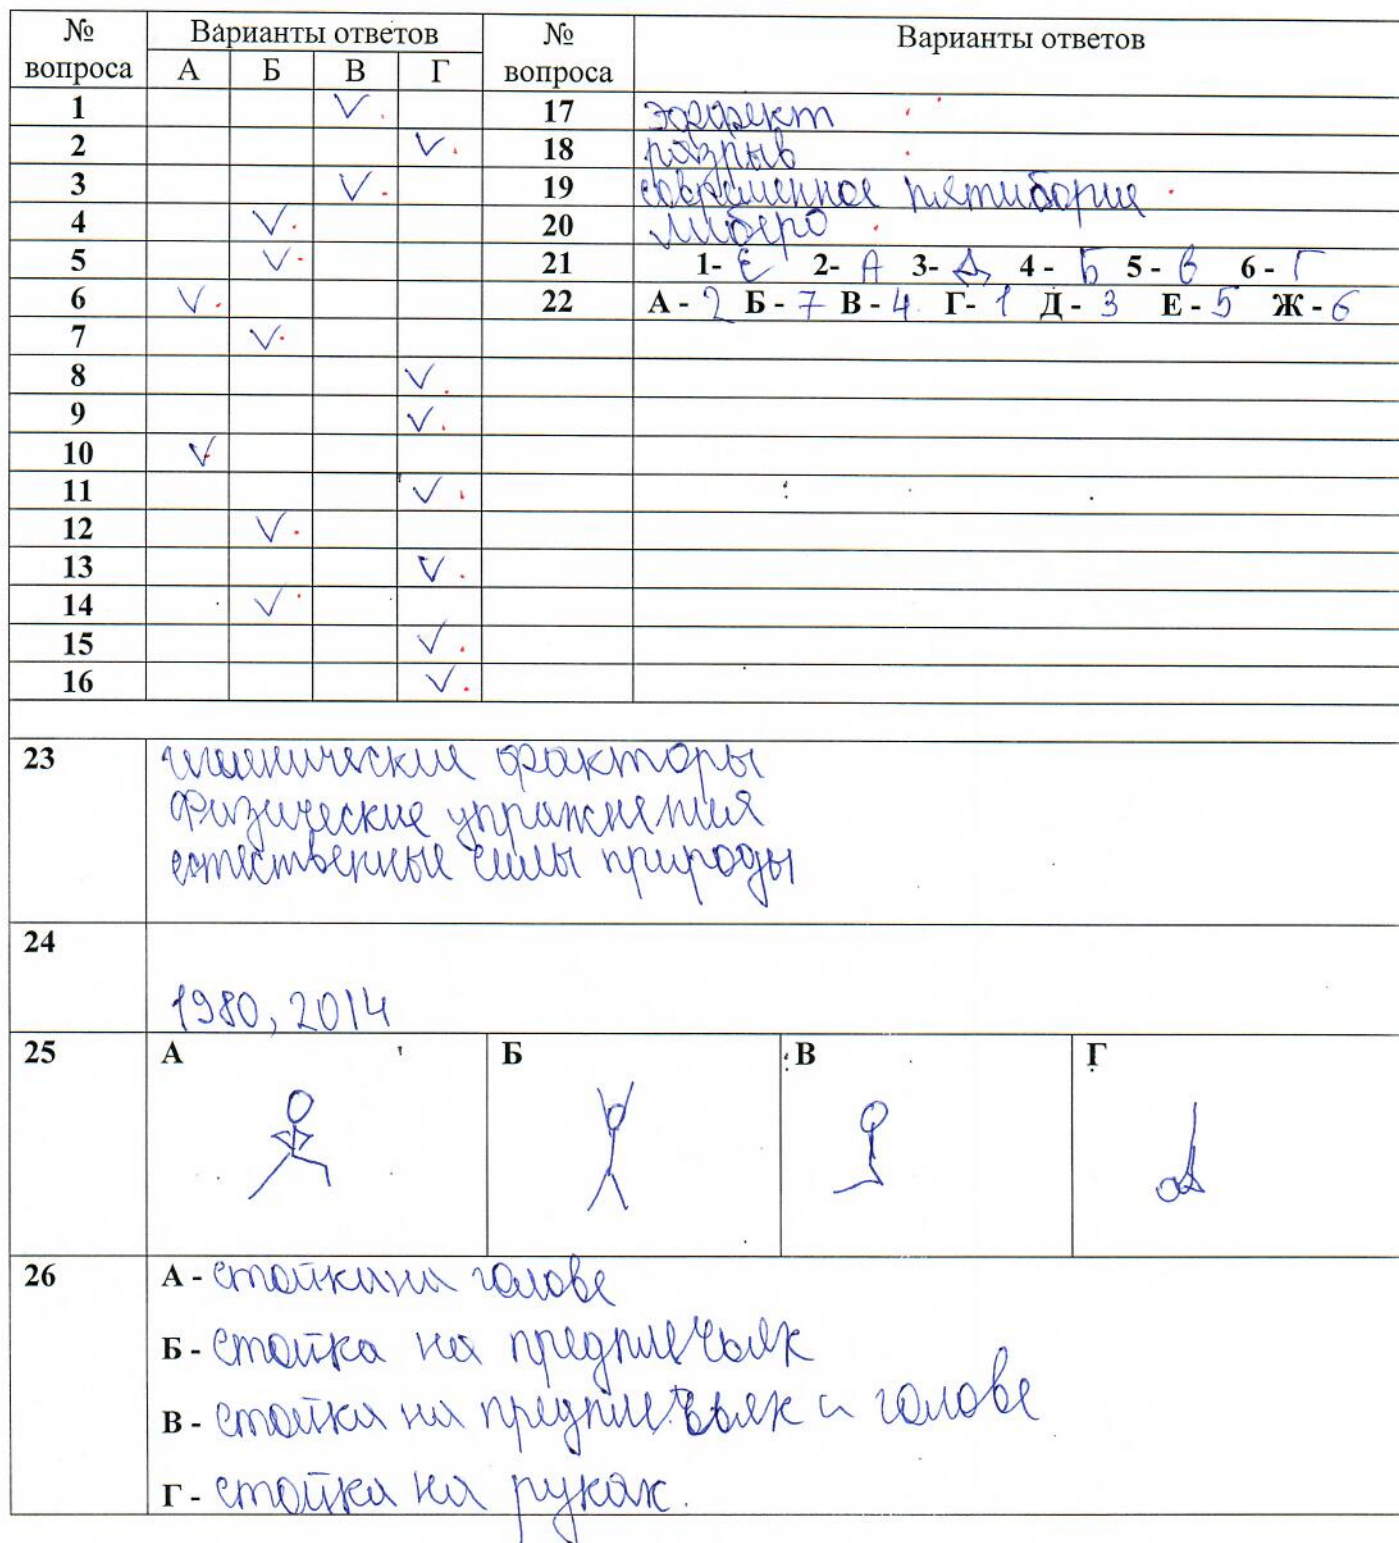 № вопроса Варианты ответов № вопроса Варианты ответов
А Б В Г
1 V 17 эффект
2 V 18 разрыв
3 V 19 современное пятиборие
4 V 20 либеро
5 V 21 1- Е 2- А 3- Д 4 - Б 5 - В 6 - Г
6 V 22 А - 2 Б - 7 В - 4 Г- 1 Д - 3 Е - 5 Ж - 6
7 V
8 V
9 V
10 V
11 V
12 V
13 V
14 V
15 V
16 V
23 гигиенические факторы
физические упражнения
естественные силы природы
24
1980, 2014
25 А Б В Г
26 А - стойка на голове
Б - стойка на предплечьях
В - стойка на предплечьях и голове
Г - стойка на руках.